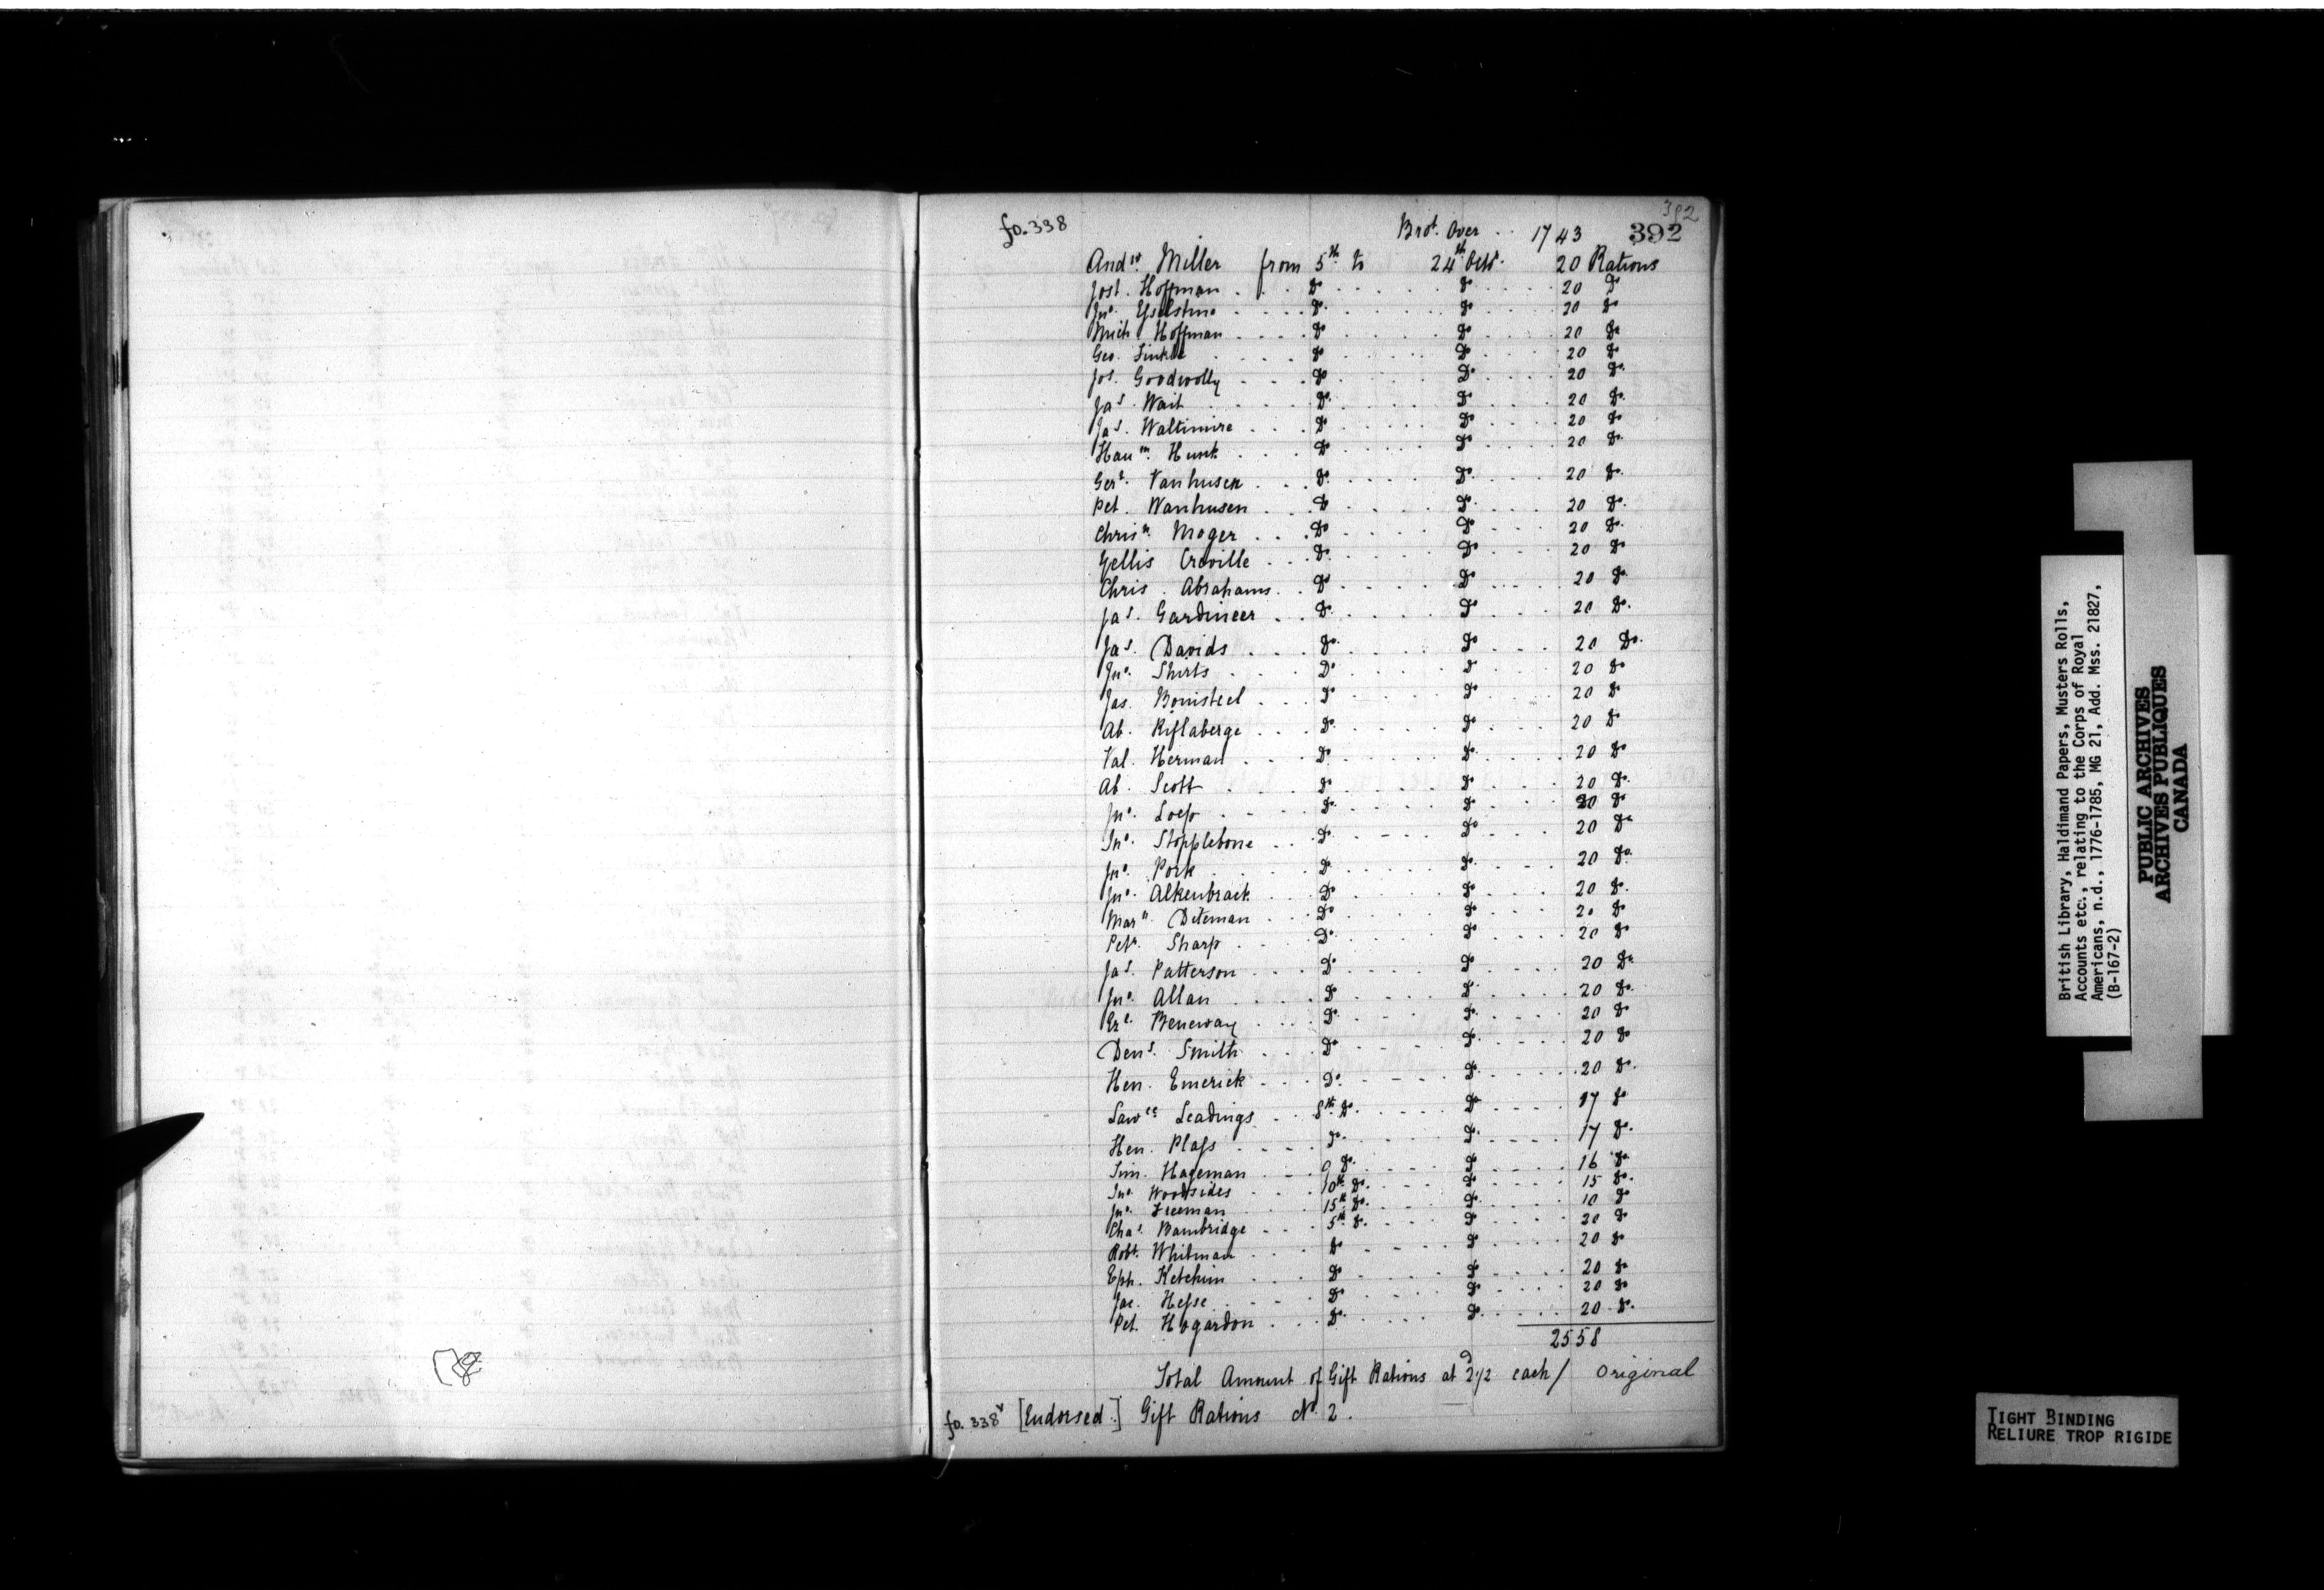 392
fo. 338 Brot. Over .. 1743 392
Andw. Miller from 5th to 24th Octr. 20 Rations
Jost. Hoffman . . . Do . . . . . Do . . . . 20 Do
Jno. Esselstine . . . . Do . . . . . Do . . . . 20 Do
Mich Hoffman . . . . Do . . . . . Do . . . . 20 Do
Geo. Finkle . . . . Do . . . . . Do . . . . 20 Do
Jos. Goodwolly . . . Do . . . . . Do . . . . 20 Do
Jas. Wait . . . . Do . . . . . Do . . . . 20 Do
Jas. Waltimire . . . Do . . . . . Do . . . . 20 Do
Haum. Hunk . . . Do . . . . . Do . . . . 20 Do
Gert. Vanhusen . . . Do . . . . . Do . . . . 20 Do
Pet. Wanhusen . . . Do . . . . . Do . . . . 20 Do
Chrisn. Moger . . . Do . . . . . Do . . . . 20 Do
Gellis Croville . . . Do . . . . . Do . . . . 20 Do
Chris. Abrahams . . Do . . . . . Do . . . . 20 Do
Jas. Gardineer . . . Do . . . . . Do . . . . 20 Do
Jas. Davids . . . Do . . . . . Do . . . . 20 Do
Jno. Shirts . . . . Do . . . . . Do . . . . 20 Do
Jas. Bonisteel . . . Do . . . . . Do . . . . 20 Do
Ab. Riflaberge . . . Do . . . . . Do . . . . 20 Do
Val. Herman . . . Do . . . . . Do . . . . 20 Do
Ab. Scott . . . Do . . . . . Do . . . . 20 Do
Jno. Loep . . . . Do . . . . . Do . . . . 20 Do
Jno. Stopplebone . . Do . . . . . Do . . . . 20 Do
Jno. Pork . . . . Do . . . . . Do . . . . 20 Do
Jno. Alkenbrack . . Do . . . . . Do . . . . 20 Do
Marn. Diteman . . . Do . . . . . Do . . . . 20 Do
Petr. Sharp . . . . Do . . . . . Do . . . . 20 Do
Jas. Patterson . . . Do . . . . . Do . . . . 20 Do
Jno. Allan . . . . Do . . . . . Do . . . . 20 Do
Ezl. Beneway . . . Do . . . . . Do . . . . 20 Do
Dens. Smith . . . Do . . . . . Do . . . . 20 Do
Hen. Emerick . . . Do . . . . . Do . . . . 20 Do
Lawce Leadings . . 8th Do . . . . . Do . . . . 17 Do
Hen. Plass . . . . Do . . . . . Do . . . . 17 Do
Sim. Hageman . . . 9 Do . . . . . Do . . . . 16 Do
Jno. Woodsides . . . 10th Do . . . . . Do . . . . 15 Do
Jno. Freeman . . . 15th Do . . . . . Do . . . . 10 Do
Chas. Bambridge . . . 5th Do . . . . . Do . . . . 20 Do
Robt. Whitman . . . Do . . . . . Do . . . . 20 Do
Eph. Ketchim . . . Do . . . . . Do . . . . 20 Do
Jac. Hesse . . . . Do . . . . . Do . . . . 20 Do
Pet. Hogardon . . . Do . . . . . Do . . . . 20 Do
2558
Total Amount of Gift Rations at 2d 1/2 each / Original
fo. 338v [Endorsed.] Gift Rations No. 2.
British Library, Haldimand Papers, Musters Rolls,
Accounts etc., relating to the Corps of Royal
Americans, n.d., 1776-1785, MG 21, Add. Mss. 21827,
(B-167-2)
PUBLIC ARCHIVES
ARCHIVES PUBLIQUES
CANADA
TIGHT BINDING
RELIURE TROP RIGIDE